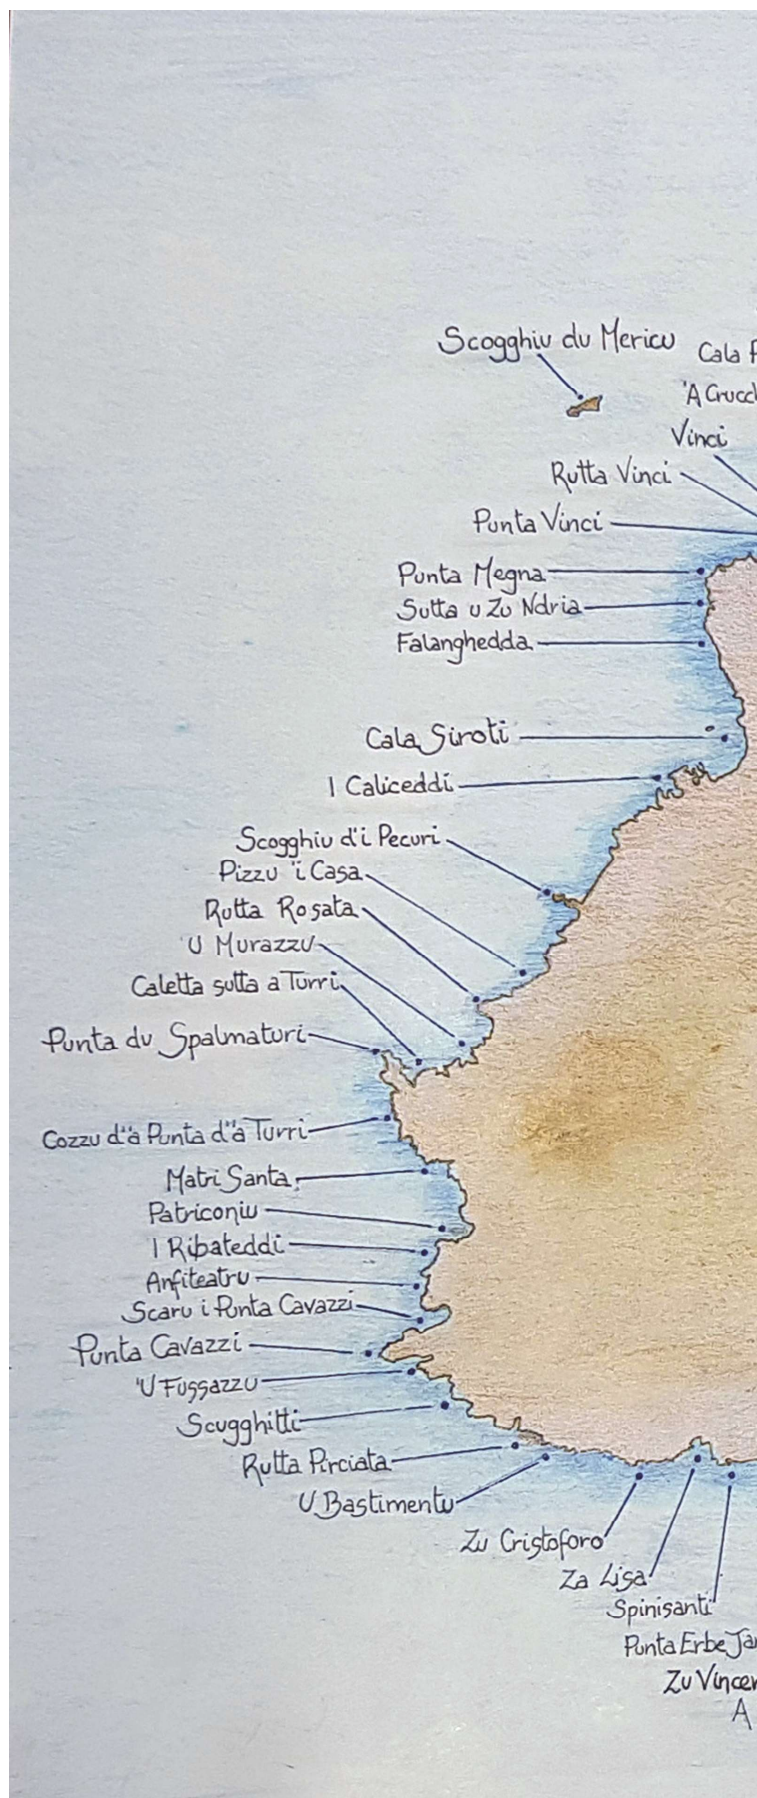 Scogghiu du Mericu
Cala
'A Crucc
Vinci
Rutta Vinci
Punta Vinci
Punta Megna
Sutta u Zu Ndria
Falanghedda
Cala Siroti
I Caliceddi
Scogghiu d'i Pecuri
Pizzu 'i Casa
Rutta Rosata
U Murazzu
Caletta sutta a Turri
Punta du Spalmaturi
Cozzu d''a Punta d''a Turri
Matri Santa
Patriconiu
I Ribateddi
Anfiteatru
Scaru i Punta Cavazzi
Punta Cavazzi
'U Fussazzu
Scugghitti
Rutta Pirciata
U Bastimentu
Zu Cristoforo
Za Lisa
Spinisanti
Punta Erbe Ja
Zu Vincen
A